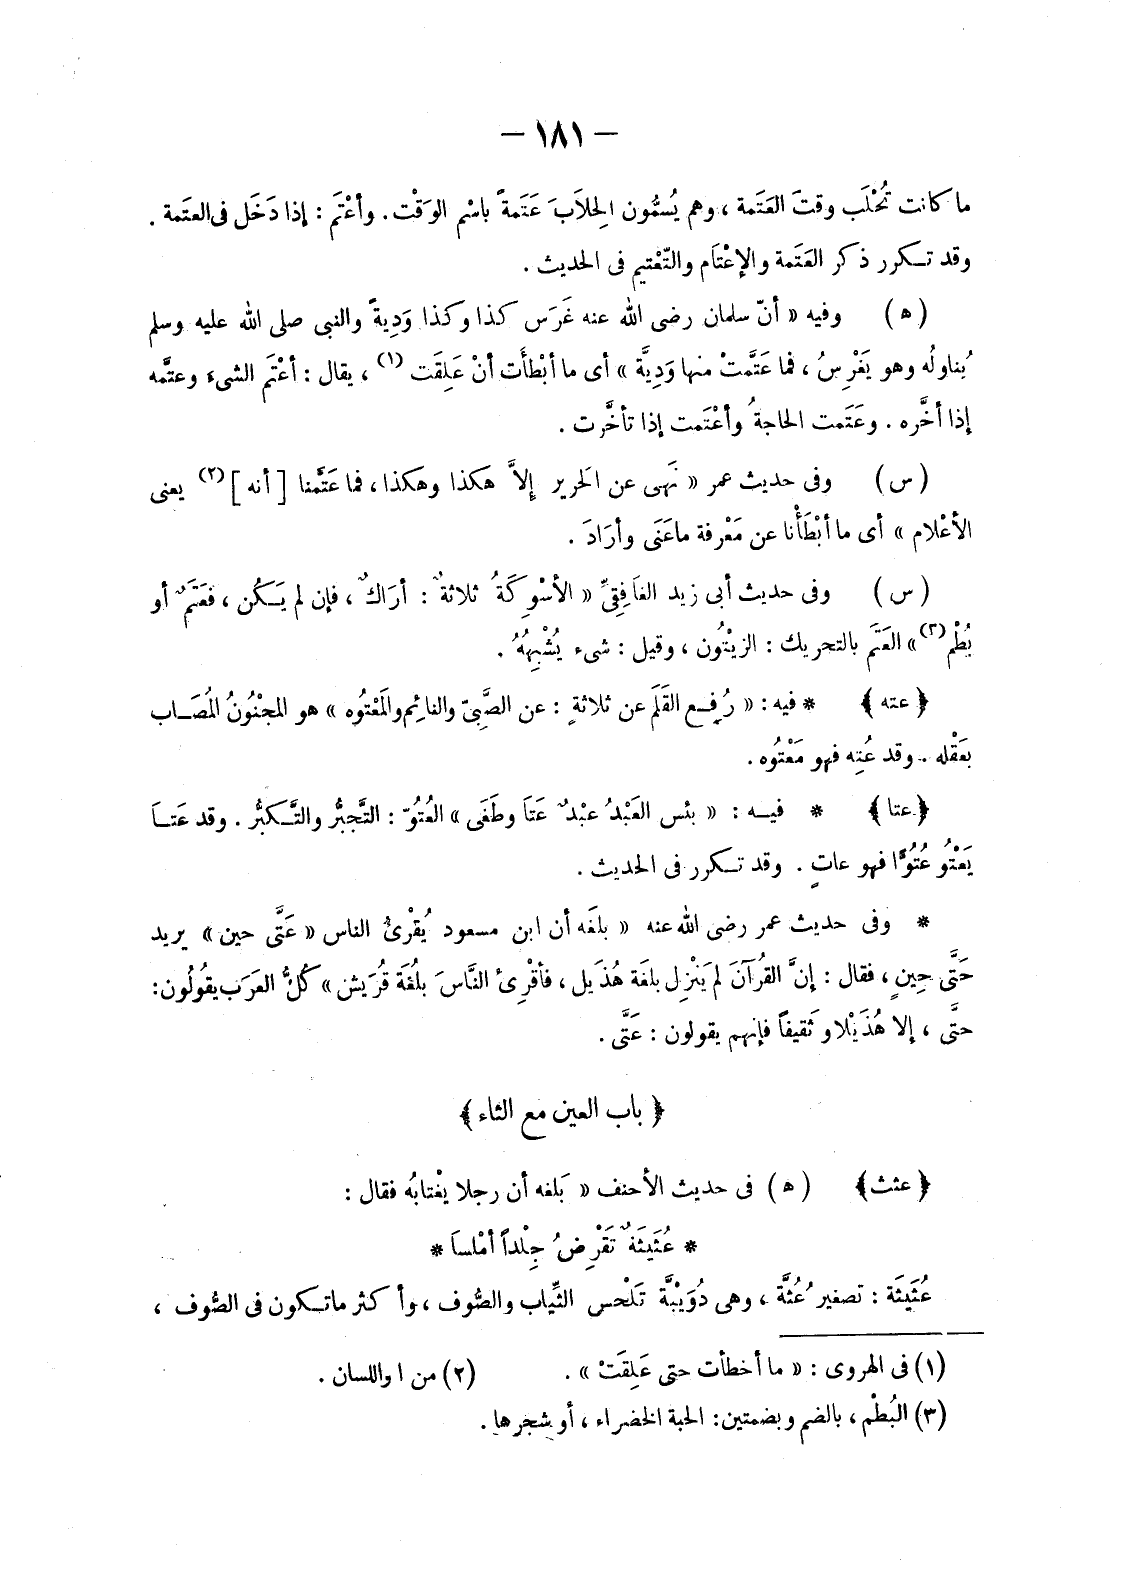 — ١٨١ —
ما كانت تُحْلَب وقتَ العَتَمة ، وهم يُسمُّون الحِلاَبَ عَتَمةً باسْم الوَقْت . وأعْتَم : إذا دَخَل فى العتَمة .
وقد تـكرر ذكر العَتَمة والإعْتَام والتّعْتيم فى الحديث .
( ه ) وفيه « أنّ سلمان رضى الله عنه غَرَس كذا وكذا وَدِيةً والنبى صلى الله عليه وسلم
يُناولُه وهو يَغْرِسُ ، فما عَتَّمتْ منها وَدِيَّة » أى ما أبْطَأَت أنْ عَلِقَت (١) ، يقال : أعْتَم الشىءَ وعتَّمه
إذا أخَّره . وعَتَمت الحاجةُ وأعْتَمت إذا تأخَّرت .
( س ) وفى حديث عمر « نَهَى عن الحَرير إلاَّ هكذا وهكذا ، فما عَتَّمْنا [ أنه ] (٢) يعنى
الأعْلام » أى ما أبْطَأْنا عن مَعْرفة ماعَنَى وأرَادَ .
( س ) وفى حديث أبى زيد الغَافِقِىِّ « الأسْوِكَةُ ثلاثةٌ : أرَاكٌ ، فإن لم يَـكُن ، فعَتَمٌ أو
بُطْم (٣) » العَتَم بالتحريك : الزيْتُون ، وقيل : شىء يُشْبِهُهُ .
﴿ عته ﴾ * فيه : « رُفِـع القَلَم عن ثلاثةٍ : عن الصَّبِىّ والنائِم والمَعْتُوه » هو المجْنُونُ المُصَـاب
بعَقْله . وقد عُتِه فهو مَعْتُوه .
﴿ عتا ﴾ * فيـه : « بئس العَبْدُ عبْدٌ عَتَا وطَغَى » العُتُوّ : التَّجبُّر والتَّـكبُّر . وقد عَتـا
يَعْتُو عُتُوًّا فهو عاتٍ . وقد تـكرر فى الحديث .
* وفى حديث عمر رضى الله عنه « بلغَه أن ابن مسعود يُقْرِئُ الناس « عَتَّى حين » يريد
حَتَّى حِينٍ ، فقال : إنَّ القُرآنَ لم يَنْزِل بلغَة هُذَيل ، فأقْرِئ النَّاسَ بلُغَة قُرَيش » كُلُّ العَرَب يقُولُون :
حتَّى ، إلا هُذَيْلا وثَقيفاً فإنهم يقولون : عَتَّى .
﴿ باب العين مع الثاء ﴾
﴿ عثث ﴾ ( ه ) فى حديث الأحنف « بَلغه أن رجلا يغْتابُه فقال :
* عُثَيثَةٌ تَقْرِضُ جِلْداً أمْلسا *
عُثَيثَة : تصغير عُثَّة ، وهى دُوَيْبَّة تَلْحس الثِّياب والصُّوف ، وأ كثر ماتـكون فى الصُّوف ،
(١) فى الهروى : « ما أخطأت حتى عَلِقَتْ » . (٢) من ا واللسان .
(٣) البُطْم ، بالضم وبضمتين : الحبة الخضراء ، أو شجرها .